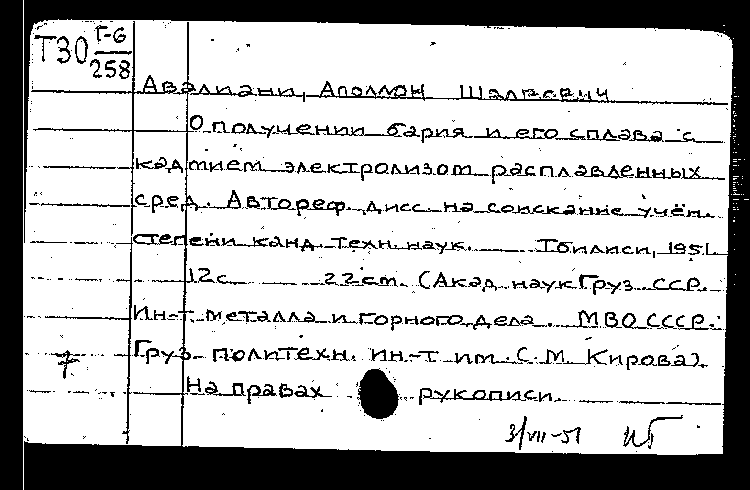 Т30 Г-6
258
Авалиани, Аполлон Шалвович
О получении бария и его сплава с
кадмием электролизом расплавленных
сред. Автореф. дисс. на соискание учён.
степени канд. техн. наук. Тбилиси, 1951.
12с 22см. (Акад. наук Груз. ССР.
Ин-т металла и горного дела. МВО СССР.
Груз. политехн. ин-т им. С. М. Кирова).
7
На правах рукописи.
3/VII-51